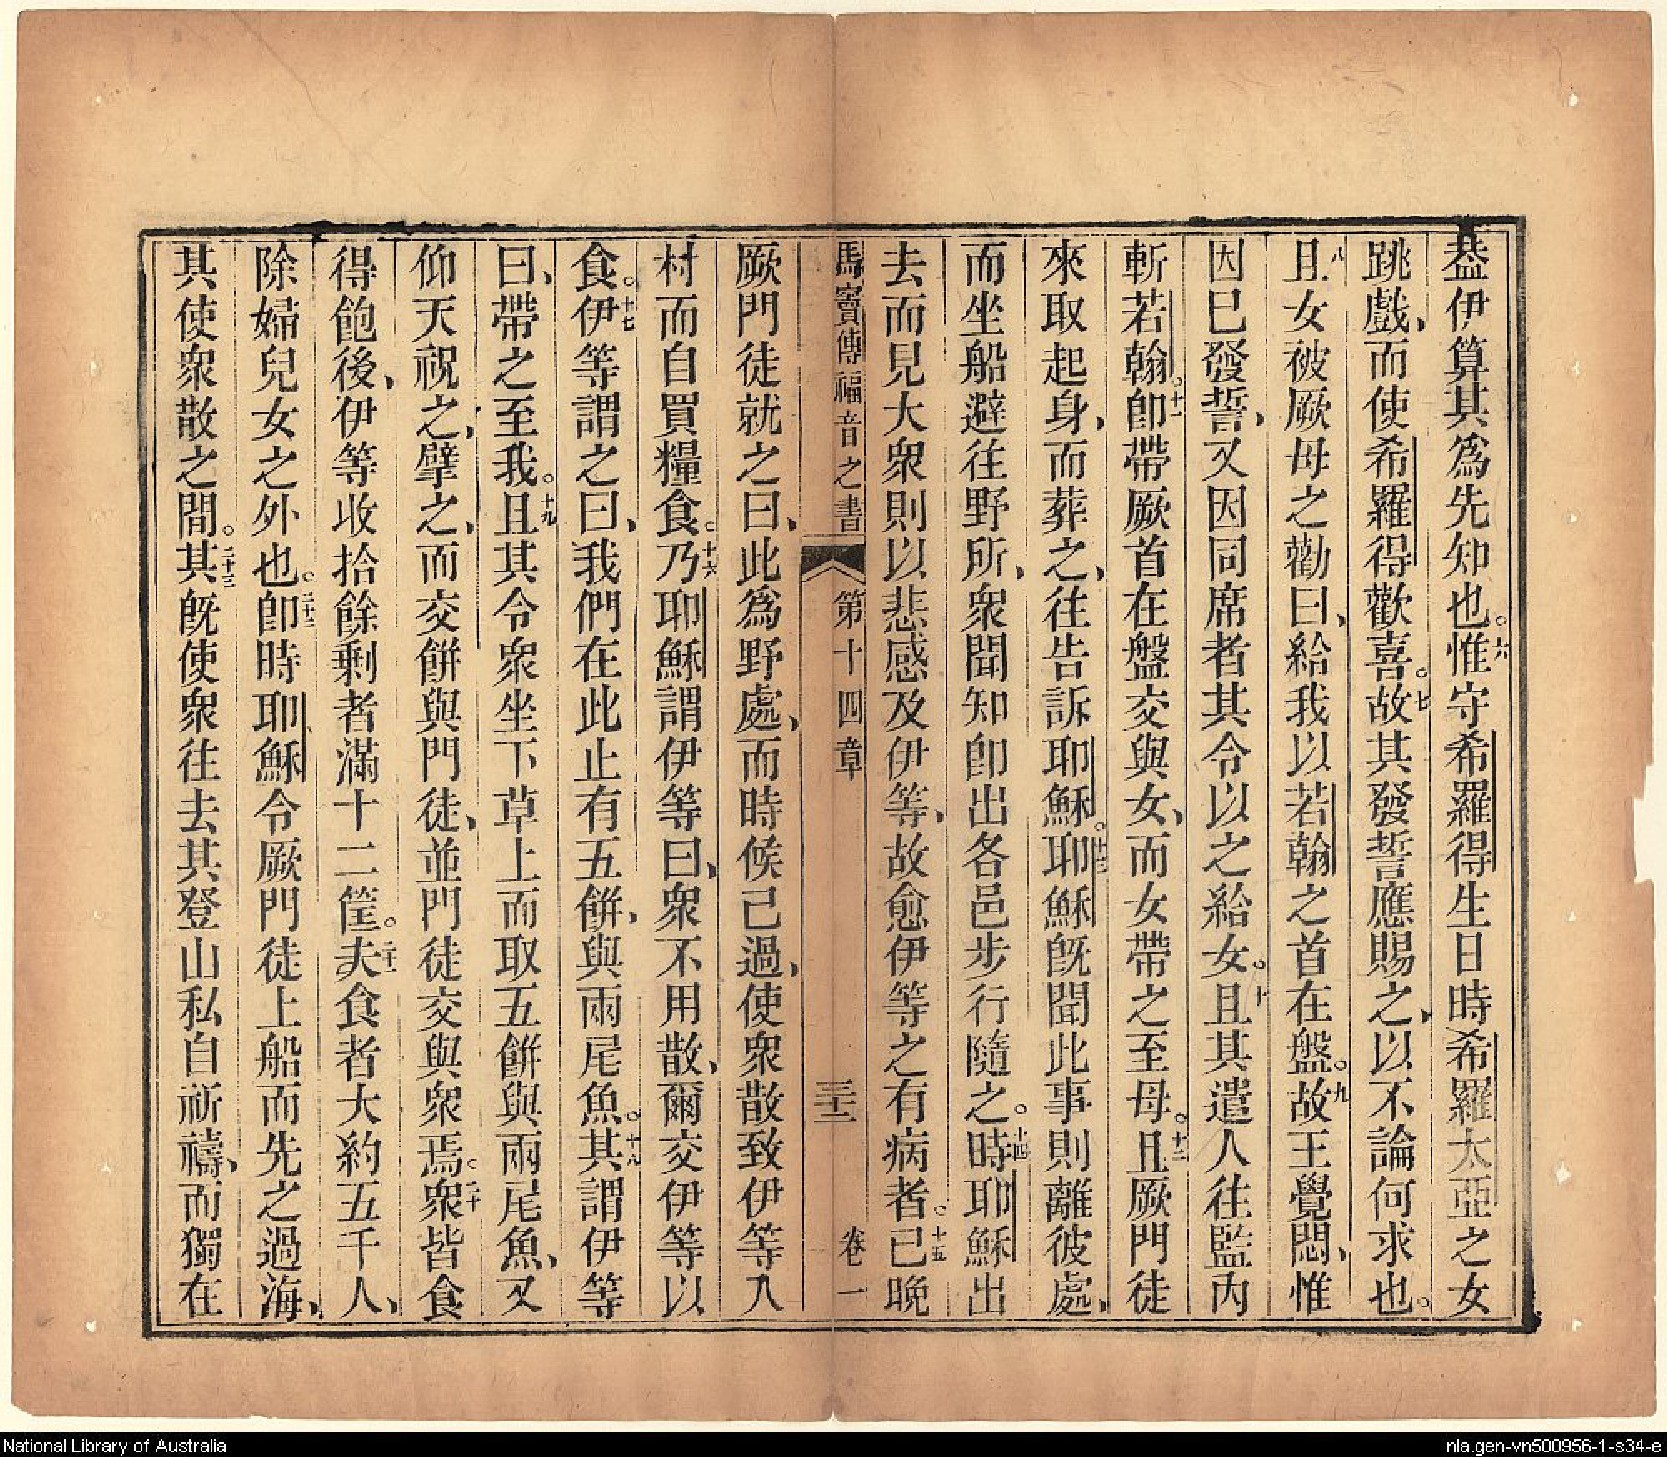 葢伊算其為先知也。六惟守希羅得生日時希羅太亞之女
跳戲、而使希羅得歡喜。七故其發誓應賜之、以不論何求也。
八且女被厥母之勸曰、給我以若翰之首在盤。九故王覺悶、惟
因已發誓、又因同席者其令以之給女。十且其遣人往監內
斬若翰。十一卽帶厥首在盤交與女、而女帶之至母。十二且厥門徒
來取起身、而葬之、往告訴耶穌。十三耶穌旣聞此事則離彼處、
而坐船避往野所、衆聞知卽出各邑步行隨之。十四時耶穌出
去而見大衆則以悲感及伊等、故愈伊等之有病者。十五已晚
馬竇傳福音之書 第十四章 三十二 卷一
厥門徒就之曰、此為野處、而時候已過、使衆散致伊等入
村而自買糧食。十六乃耶穌謂伊等曰、衆不用散、爾交伊等以
食。十七伊等謂之曰、我們在此止有五餅、與兩尾魚。十八其謂伊等
曰、帶之至我。十九且其令衆坐下草上而取五餅與兩尾魚、又
仰天祝之、擘之、而交餅與門徒、並門徒交與衆焉。二十衆皆食
得飽後、伊等收拾餘剩者滿十二筐。二十一夫食者大約五千人、
除婦兒女之外也。二十二卽時耶穌令厥門徒上船而先之過海、
其使衆散之間。二十三其旣使衆往去其登山私自祈禱、而獨在
National Library of Australia
nla.gen-vn500956-1-s34-e